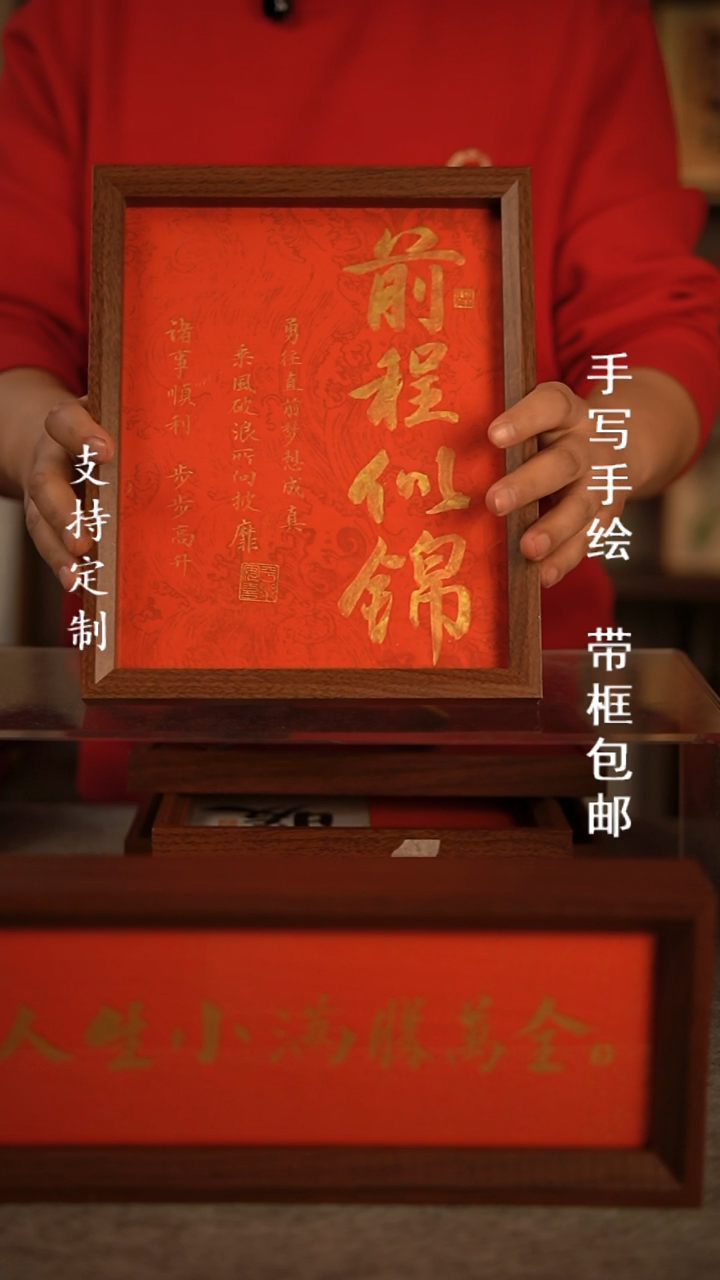 前程似錦
勇往直前梦想成真
乘风破浪所向披靡
诸事順利 步步高升
支持定制
手写手绘 带框包邮
人生小满勝萬金